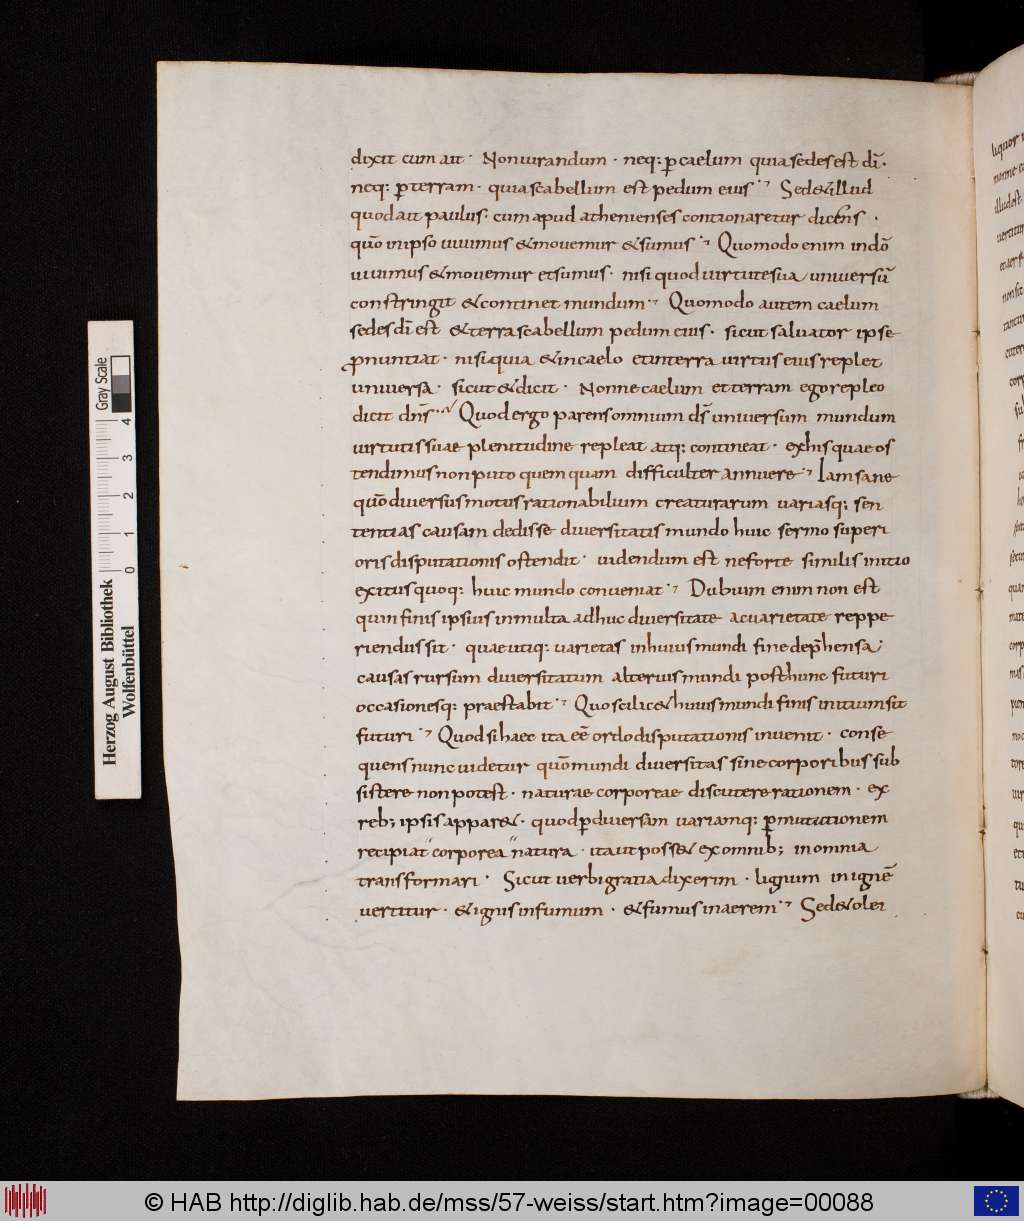 dixit cum ait · Non iurandum · neq: ꝑ caelum quia sedes est dī·
neq: ꝑ terram · quia scabellum est pedum eius ·⁊ Sed & illud
quod ait paulus· cum apud athenienses contionaretur dicens ·
quō in ipso uiuimus & mouemur & sumus ·⁊ Quomodo enim in dō
uiuimus & mouemur et sumus · nisi quod uirtute sua uniuersū
constringit & continet mundum ·⁊ Quomodo autem caelum
sedes dī est & terra scabellum pedum eius · sicut saluator ipse
ꝓnuntiat · nisi quia & in caelo et in terra uirtus eius replet
uniuersa · sicut & dicit · Nonne caelum et terram ego repleo
dicit dn̄s ·⁊ Quod ergo parens omnium ds̄ uniuersum mundum
uirtutis suae plenitudine repleat atq: contineat · ex his quae os
tendimus non puto quemquam difficulter annuere ·⁊ Iam sane
quō diuersus motus rationabilium creaturarum uariasq: sen
tentias causam dedisse diuersitatis mundo huic sermo superi
oris disputationis ostendit · uidendum est ne forte similis initio
exitus quoq: huic mundo conueniat ·⁊ Dubium enim non est
quin finis ipsius in multa adhuc diuersitate ac uarietate reppe
riendus sit · quae utiq: uarietas in huius mundi fine dep̄hensa ·
causas rursum diuersitatum alterius mundi post hunc futuri
occasionesq: praestabit ·⁊ Quo scilic& huius mundi finis initium sit
futuri ·⁊ Quod si haec ita eē ordo disputationis inuenit · conse
quens nunc uidetur quōm mundi diuersitas sine corporibus sub
sistere non potest · naturae corporeae discutere rationem · ex
reb; ipsis appar& · quod ꝑ diuersam uariamq: ꝑmutationem
recipiat corporea natura · ita ut poss& ex omnib; in omnia
transformari · Sicut uerbi gratia dixerim · lignum in ignē
uertitur · & ignis in fumum · & fumus in aerem ·⁊ Sed & olei
liquor
illud est
uertitur
non sit
Herzog August Bibliothek
Wolfenbüttel
Gray Scale
0 1 2 3 4
© HAB http://diglib.hab.de/mss/57-weiss/start.htm?image=00088